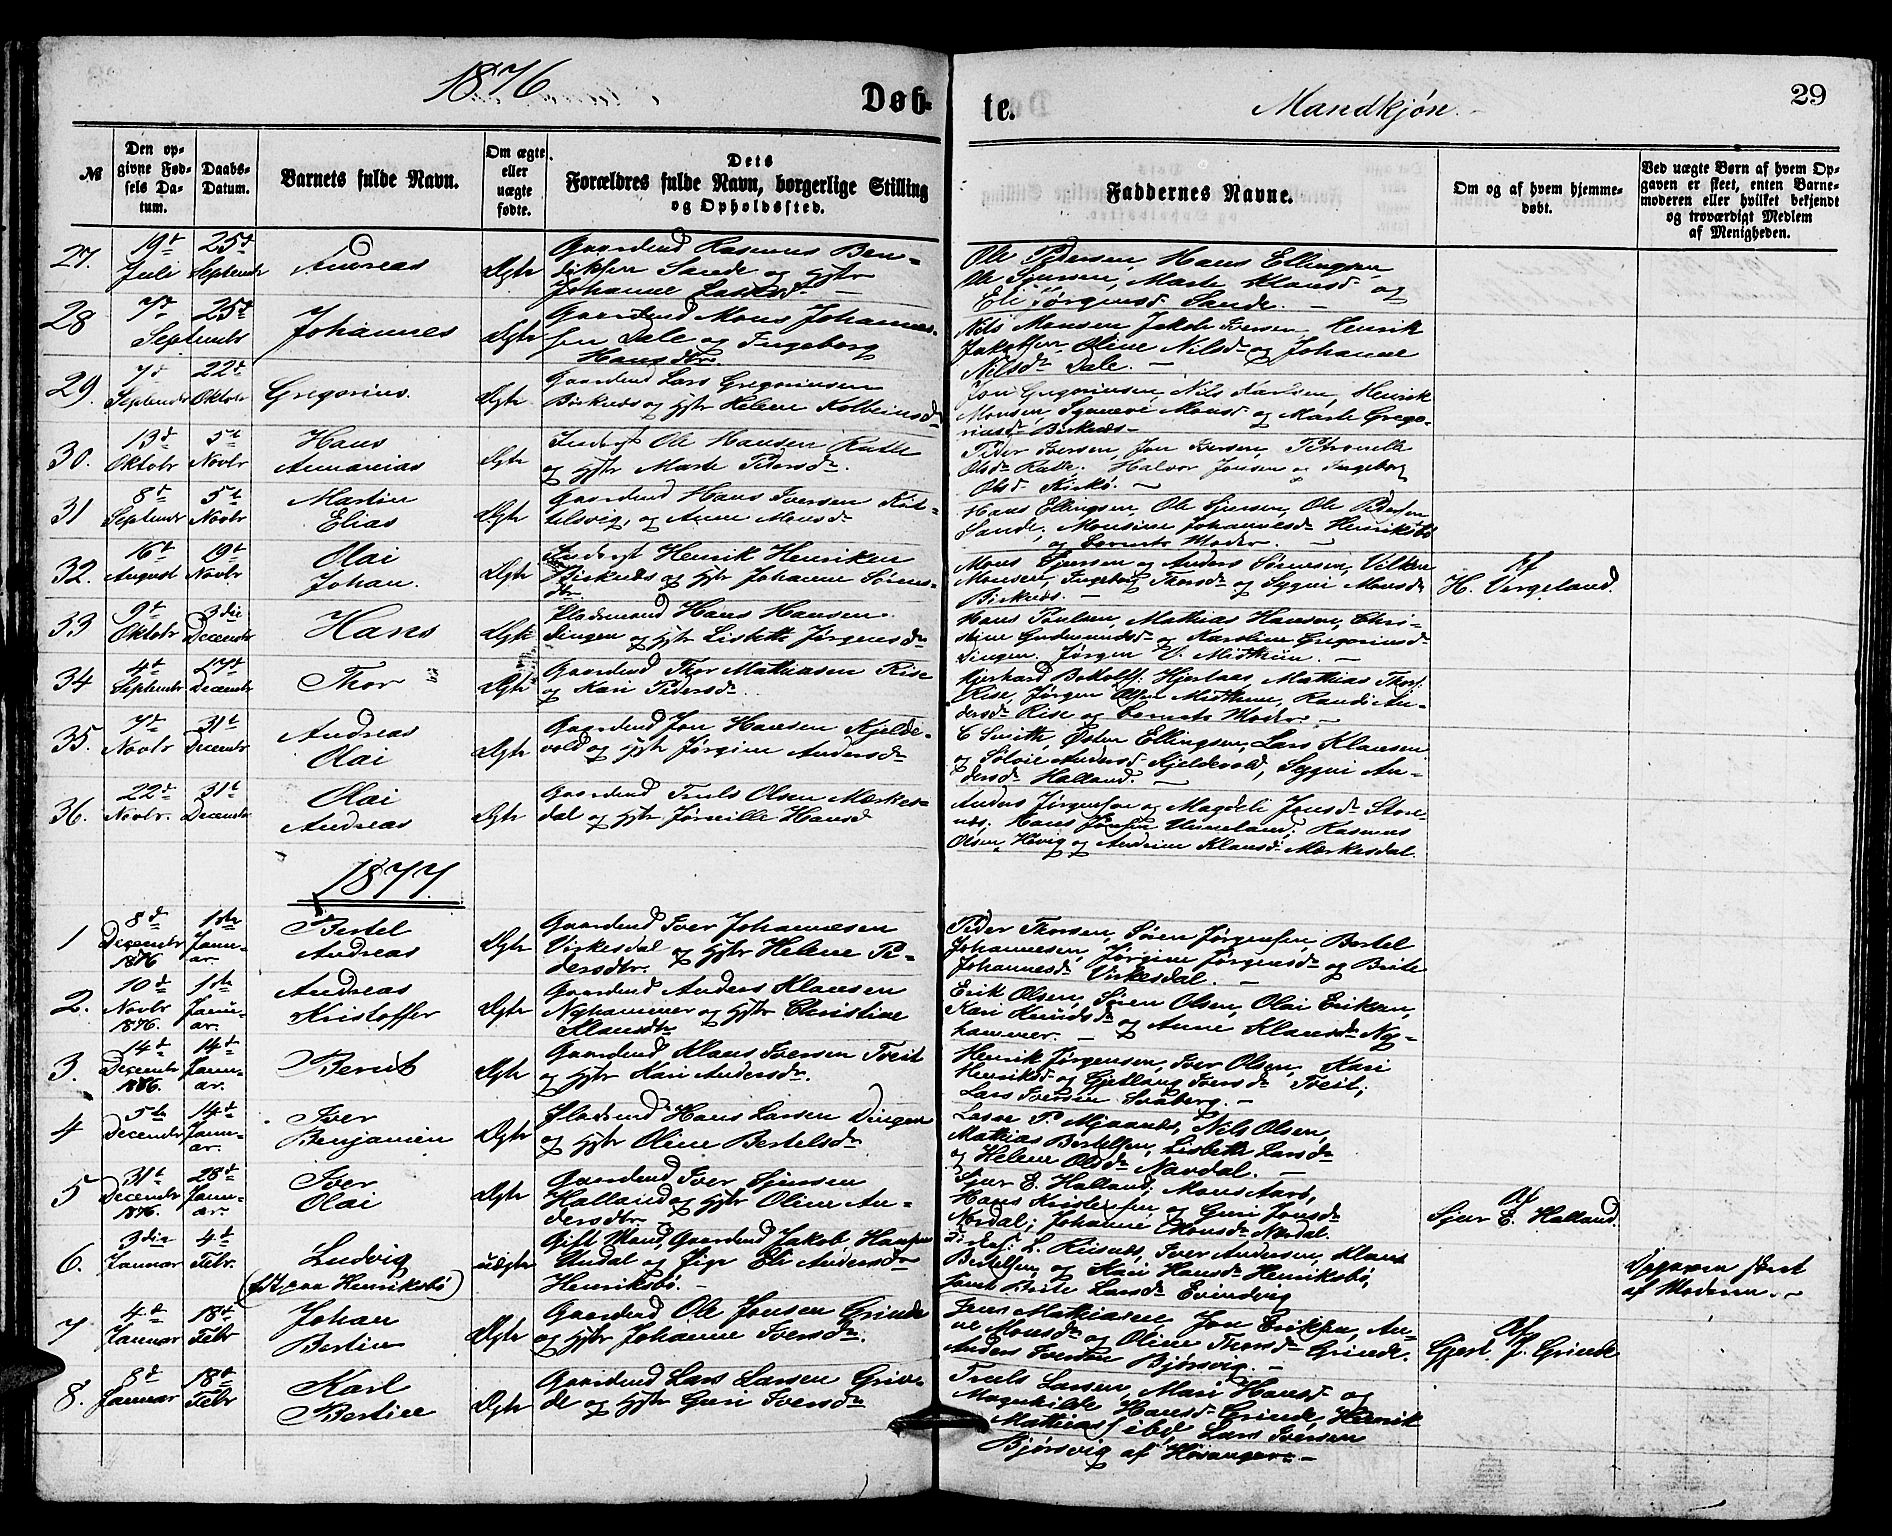 1876
Døb-
te.
Mandkjøn.
29
№
Den opgivne Fødsels Datum.
Daabs-Datum.
Barnets fulde Navn.
Om ægte eller uægte fødte.
Dets Forældres fulde Navn, borgerlige Stilling og Opholdssted.
Faddernes Navne.
Om og af hvem hjemmedøbt.
Ved uægte Børn af hvem Opgaven er skeet, enten Barnemoderen eller hvilket bekjendt og troværdigt Medlem af Menigheden.
27. 19d Juli 25d Septembr Andreas Ægte
Gaardmd Rasmus Ben-
diksen Sande og Hstr
Johanne Larsd
Ole Pedersen, Hans Ellingsen
Ole Sjursen, Marte Klausd og
Eli Jørgensd. Sande. —
28 7d Septembr 25d Johannes Ægte
Gaardmd Mons Johannes-
sen Dale og Ingeborg
Hansdtr.
Nils Monsen, Jakob Iversen, Henrik
Jakobsen, Oline Nilsd og Johanne
Nilsdr Dale. —
29. 7d Septembr 22d Oktobr Gregorius. Ægte
Gaardmd Lars Gregoriusen
Birknæs og Hstr Helene Kolbeinsd
Jon Gregoriusen, Nils Larsen, Henrik
Monsen, Synneve Monsd og Marte Grego-
riusd Birknæs —
30. 13d Oktobr 5t Novbr Hans Annanias Ægte
Inderst Ole Hansen Rutle
og Hstr Marte Pedersdr.
Peder Iversen, Jon Iversen, Petronelle
Olsdr Rutle. Halvor Jonsen og Ingeborg
Olsd. Kirkø. —
31 8d Septembr 5t Novbr Martin Elias Ægte
Gaardmd Hans Iversen Kit-
telsvig, og Anne Monsdr
Hans Ellingsen, Ole Sjursen, Ole Pedersen
Sande, Monsine Johannesdr Henriksbø
og Barnets Moder. —
32. 16d August 19d Novbr Olai Johan. Ægte
Inderst Henrik Henriksen
Birknæs og Hstr Johanne Sørens-
dtr.
Mons Sjursen og Anders Sørensen, Vilken
Monsen, Ingeborg Thorsdr og Sygni Monsdr
Birknæs. —
Af
H. Vergeland.
33 9d Oktobr 3die Decembr Hans Ægte
Pladsmand Hans Hansen
Dingen og Hstr Lisbeth Jørgensdr
Hans Poulsen, Mathias Hansen, Chri-
stine Gudmundsdr og Karoline Gregoriusdr
Dingen. Jørgen O. Midthun. —
34 4d Septembr 17d Decembr Thor Ægte
Gaardmd Thor Mathiasen Rise
og Kari Pedersdr.
Gjerhard Botolfs. Hjertaas, Mathias Thors.
Rise, Jørgen Olsen Midthun, Randi An-
dersdr Rise og Barnets Moder. —
35. 7d Novbr 31t Decembr Andreas Olai Ægte
Gaardmd Jon Hansen Kjelde-
vold og Hstr Jørgine Andersdr
C Smith, Østen Ellingsen, Lars Klausen
og Sølvie Andersd. Kjeldevold, Sygni An-
dersdr Halland. —
36. 22d Novbr. 31t Decembr Olai Andreas Ægte
Gaardmd Truls Olsen Mærkes-
dal og Hstr Jørnille Hansd
Anders Jørgensen og Magdeli Jonsdr Store-
næs. Hans Jonsen Unneland; Rasmus
Olsen, Høvig og Andrine Klausdr Mærkesdal.
1877
1 8d Decembr 1876 1ste Januar. Bertel Andreas Ægte
Gaardmd Iver Johannesen
Virkesdal og Hstr Helene Pe-
dersdtr.
Peder Thorsen, Søren Jørgensen, Bertel
Johannesen, Jørgine Jørgensdr og Brite
Johannesdr Virkesdal. —
2. 10d Novbr 1876. 1ste Januar. Andreas Kristoffer Ægte
Gaardmd Anders Klausen
Nyhammer og Hstr Christine
Klausdtr
Erik Olsen, Søren Olsen, Olai Eriksen,
Kari Knudsdr og Anne Klausdr Ny-
hammer. —
3. 14d Decembr 1876. 14d Januar. Bernt Ægte
Gaardmd Klaus Iversen Tveit
og Hstr Kari Andersdr.
Henrik Jørgensen, Iver Olsen, Kari
Henriksd og Gjetlaug Iversdr Tveit,
Lars Iversen Svaberg. —
4 5t Decembr 14d Januar. Iver Benjamin Ægte
Pladsmd Hans Larsen Dingen
og Hstr Oline Bertelsdr
Lasse P. Mjaanæs, Nils Olsen,
Mathias Bertelsen, Lisbeth Larsdr
og Helene Olsdr Nordal. —
5 31t Decembr 1876. 28d Januar. Iver Olai Ægte
Gaardmd Iver Sjursen
Halland og Hstr Oline An-
dersdtr.
Sjur E. Halland, Mons Aars,
Hans Kristensen og Guri Jonsdr
Nordal; Johanne Monsdr Nordal.
Af
Sjur E. Halland.
6. 3die Januar 4d Febr. Ludvig (født paa Henriksbø) uægte
Gift Mand, Gaardmd Jakob Hansen
Undal og Pige Eli Andersdr
Henriksbø.
Kirkes. L. Risnæs, Iver Andersen, Klaus
Bertelsen og Kari Hansdr Henriksbø,
samt Brite Larsdr Evindvig
Opgaven skeet
af Moderen. —
7 4d Januar 18d Febr Johan Bertin Ægte
Gaardmd Ole Jonsen Grinde
og Hstr Johanne Iversdr.
Jens Mathiasen, Jon Eriksen, An-
ne Monsdr og Oline Thorsdr Grinde.
Anders Iversen Bjørsvig. —
Af
Gjert. J. Grinde
8. 8d Januar 18d Febr Karl Bertin Ægte
Gaardmd Lars Larsen Grin-
de og Hstr Guri Iversdr
Truls Larsen, Mari Hansdr og
Magnhilde Hansdr Grinde, Henrik
Mathias. ibd, Lars Iversen
Bjørsvig af Hosanger —